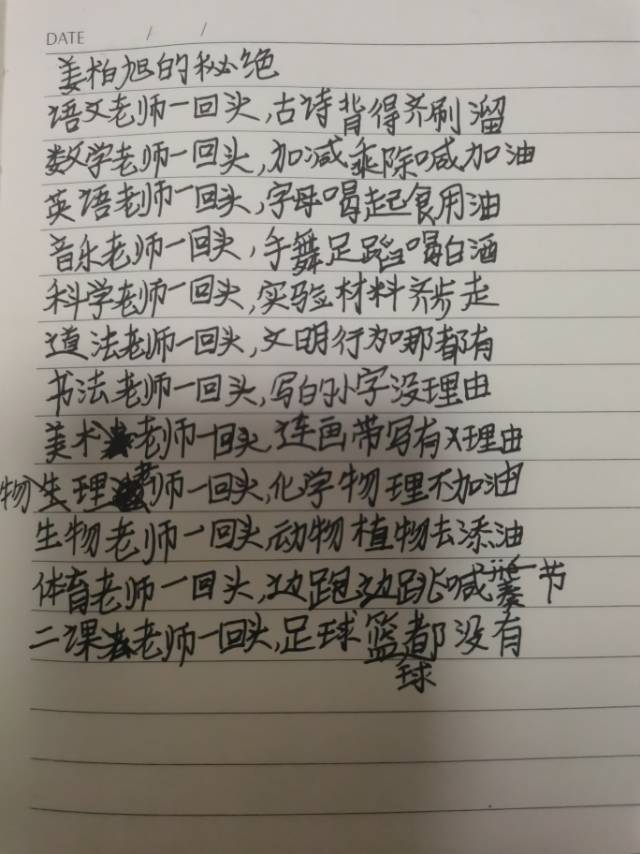 DATE / /
姜柏旭的秘绝
语文老师一回头,古诗背得齐刷溜
数学老师一回头,加减乘除喊加油
英语老师一回头,字母喝起食用油
音乐老师一回头,手舞足蹈喝白酒
科学老师一回头,实验材料齐步走
道法老师一回头,文明行为哪都有
书法老师一回头,写的小字没理由
美术老师一回头,连画带写有义理由
物生理老师一回头,化学物理不加油
生物老师一回头,动物植物去添油
体育老师一回头,边跑边跳喊节奏
二课老师一回头,足球篮球都没有